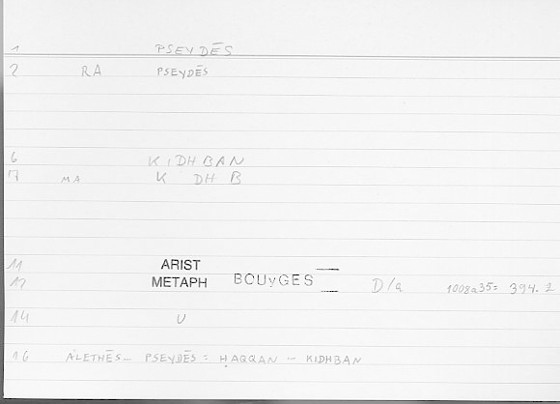 1 PSEYDĒS
2 RA PSEYDĒS
6 KIDHBAN
7 MA K DH B
11 ARIST
12 METAPH BOUyGES D/a 1008a35= 394.2
14 U
16 ALETHĒS – PSEYDĒS = ḤAQQAN – KIDHBAN